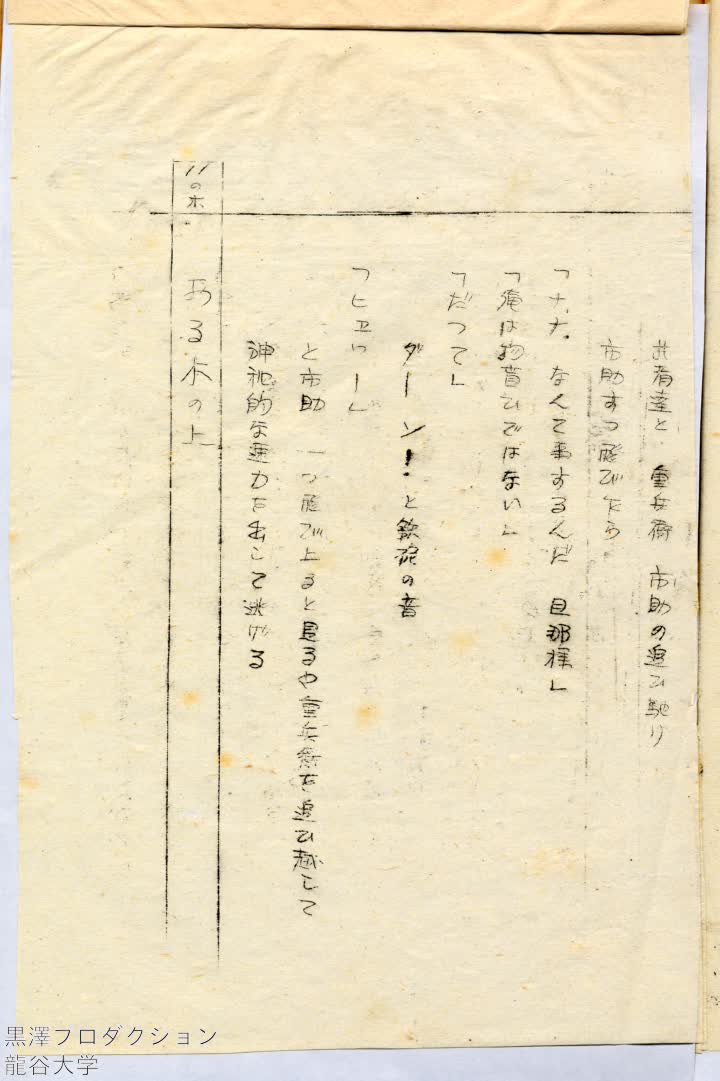 若者達と 重兵衛 市助の追ひ馳け
市助すつ飛び乍ら
「ナ、ナ、なんて事するんだ 旦那様」
「俺は物盲ひではない」
「だつて」
ダーン!と鉄砲の音
「ヒェッー」
と市助 一つ飛び上ると見るや重兵衛を追ひ越して
神秘的な速力を出して逃げる
11の木
ある木の上
黒澤プロダクション
龍谷大学